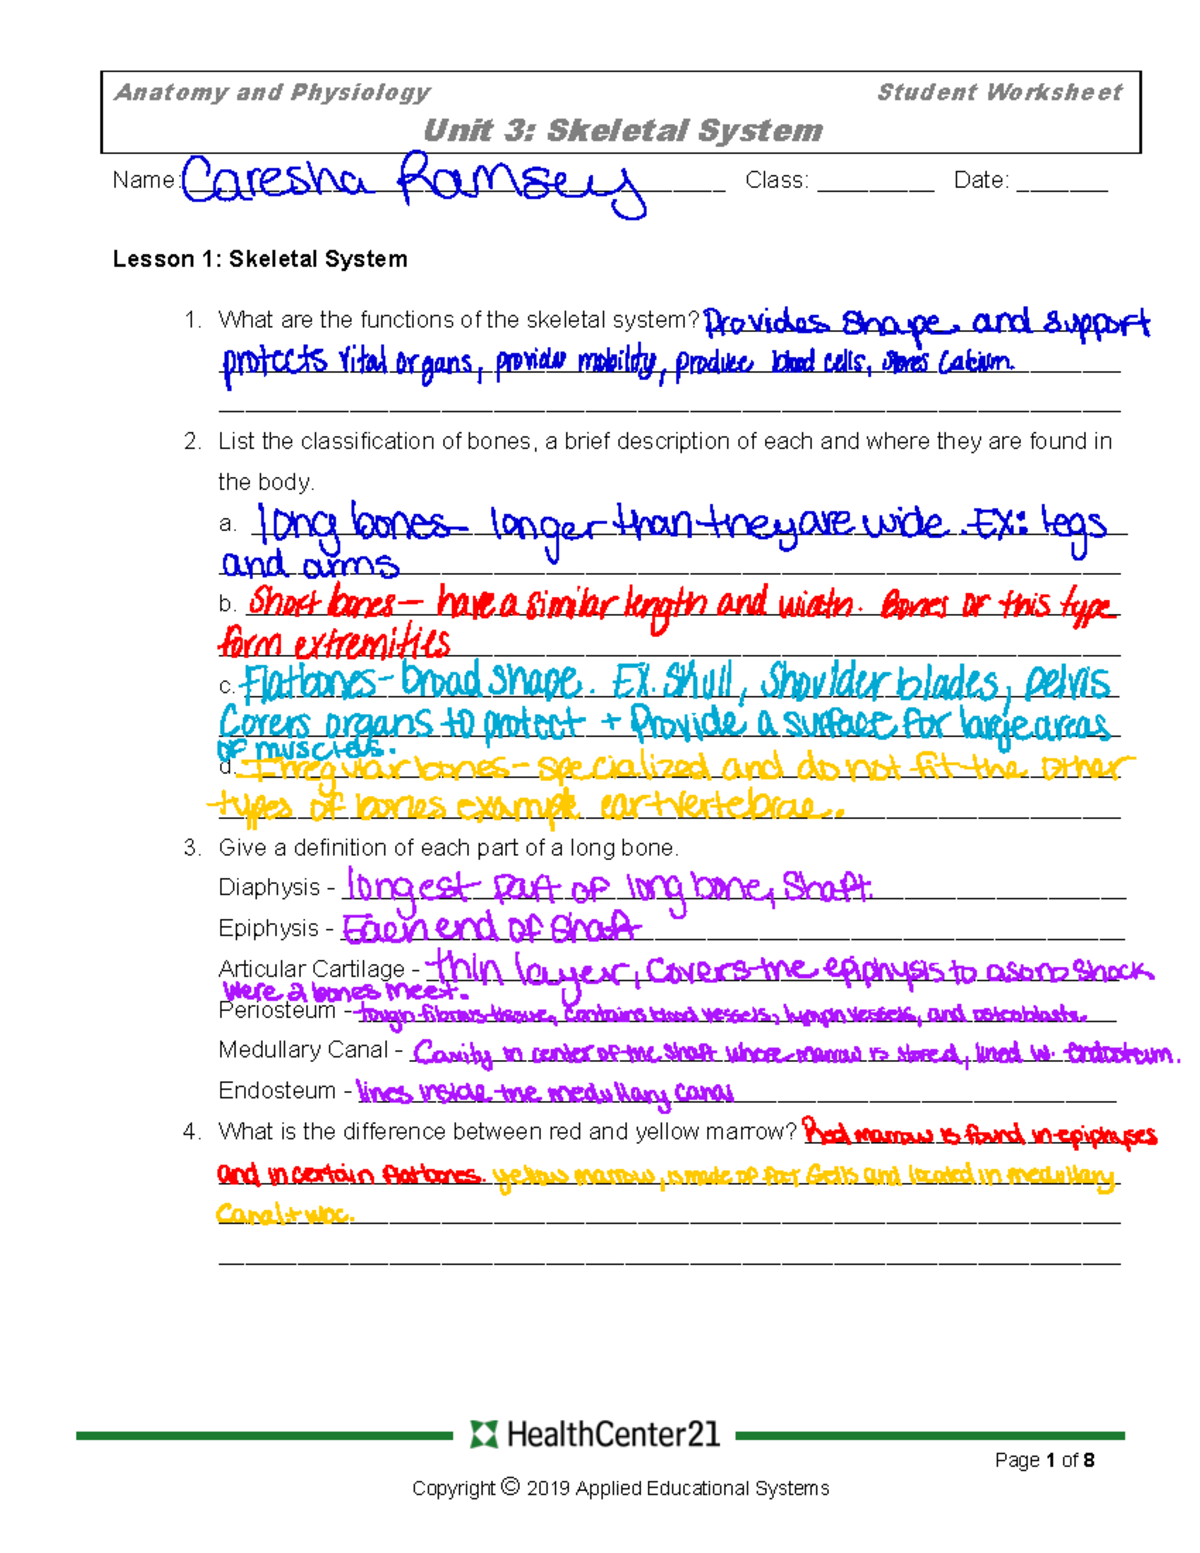 Anatomy and Physiology Student Worksheet
Unit 3: Skeletal System
Name: Caresha Ramsey Class: ________ Date: ______
Lesson 1: Skeletal System
1. What are the functions of the skeletal system? Provides shape, and support
protects vital organs, provide mobility, produce blood cells, stores Calcium.
2. List the classification of bones, a brief description of each and where they are found in
the body.
a. long bones- longer than they are wide. EX: legs
and arms
b. Short bones- have a similar length and width. Bones of this type
form extremities
c. Flat bones- broad shape. EX. Skull, Shoulder blades, pelvis
Covers organs to protect + Provide a surface for large areas
of muscles.
d. Irregular bones- specialized and do not fit the other
types of bones example ear + vertebrae.
3. Give a definition of each part of a long bone.
Diaphysis - longest part of long bone, Shaft.
Epiphysis - Each end of shaft
Articular Cartilage - thin layer, covers the epiphysis to absorb shock
were 2 bones meet.
Periosteum - tough fibrous tissue, contains blood vessels, lymph vessels, and osteoblasts
Medullary Canal - Cavity in center of the shaft where marrow is stored, lined w. endosteum.
Endosteum - lines inside the medullary canal
4. What is the difference between red and yellow marrow? Red marrow is found in epiphyses
and in certain flat bones. yellow marrow, is made of fat Cells and located in medullary
Canal + WBC.
HealthCenter21
Page 1 of 8
Copyright © 2019 Applied Educational Systems